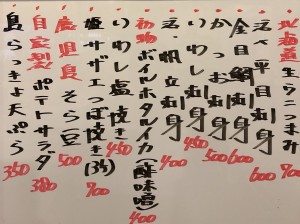 北海道生うにつまみ 700
活〆平目刺身 600
金目鯛刺身 600
かつお刺身 500
いわし刺身 450
活・帆立刺身 400
初物ボイルホタルイカ(酢味噌) 400
いわし塩焼き 450
サザエつぼ焼き(3ケ) 700
鹿児島そら豆 500
自家製ポテトサラダ 380
島らっきょ天ぷら 350